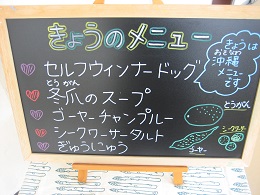 きょうのメニュー
きょうは
おとなの
沖縄
メニュー
です
セルフウィンナードッグ
とうがん
冬瓜のスープ
ゴーヤーチャンプルー
シークワーサータルト
ぎゅうにゅう
とうがん
シークワーサー
ゴーヤー